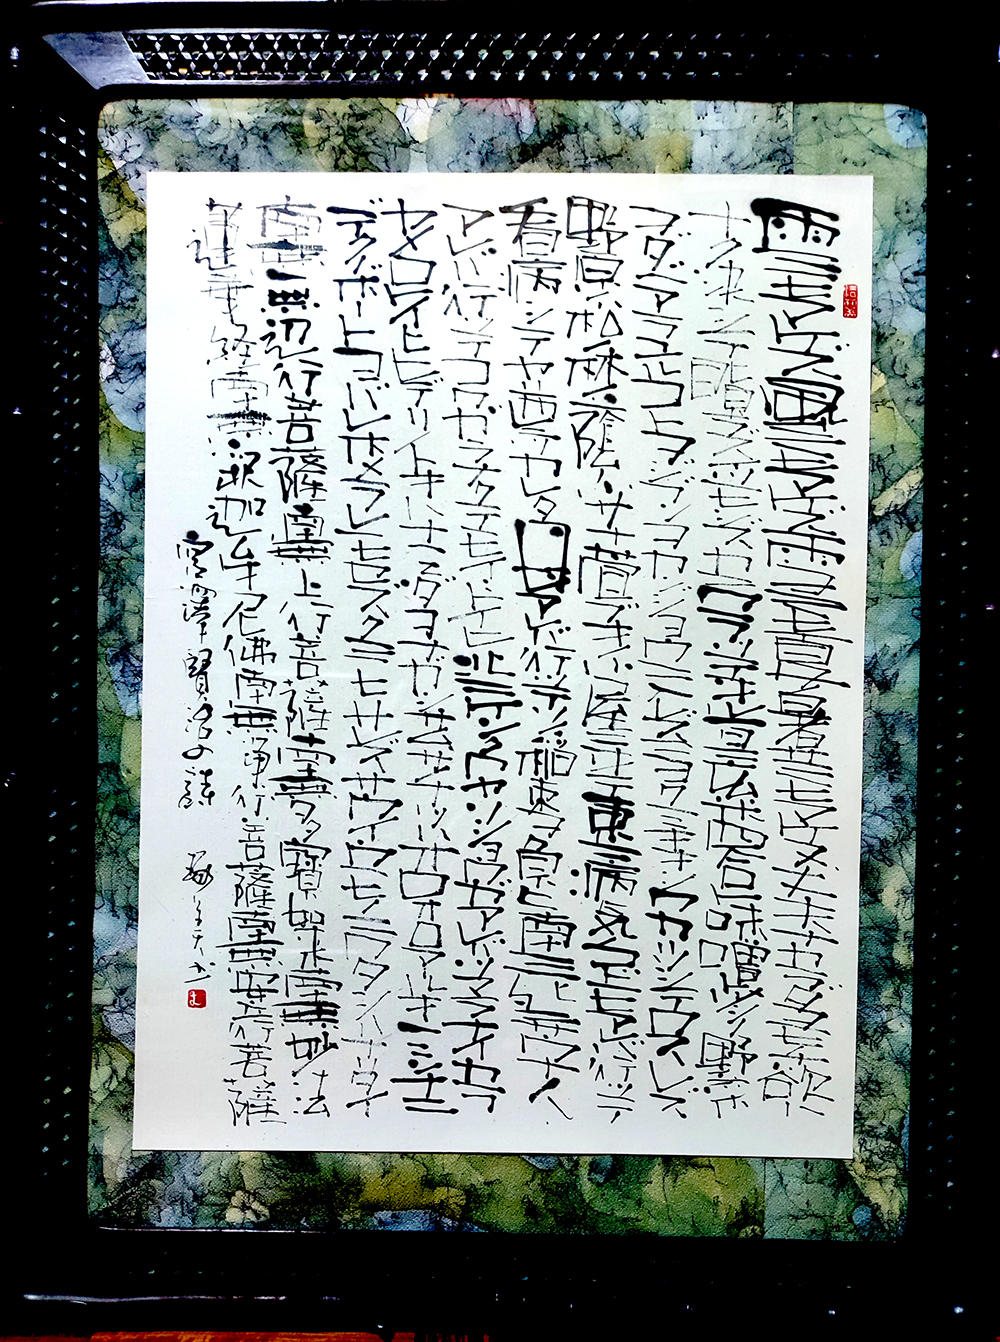 雨ニモマケズ風ニモマケズ雪ニモ夏ノ暑サニモマケヌ丈夫ナカラダヲモチ欲ハ
ナク決シテ瞋ラズイツモシズカニワラッテヰル一日ニ玄米四合ト味噌ト少シノ野菜
ヲタベアラユルコトヲジブンヲカンジョウニ入レズニヨクミキキシワカリソシテワスレズ
野原ノ松ノ林ノ蔭ノ小サナ萱ブキノ小屋ニヰテ東ニ病気ノコドモアレバ行ッテ
看病シテヤリ西ニツカレタ母アレバ行ッテソノ稲ノ束ヲ負ヒ南ニ死ニサウナ人
アレバ行ッテコハガラナクテモイヽトイヒ北ニケンクヮヤソショウガアレバツマラナイカラ
ヤメロトイヒヒデリノトキハナミダヲナガシサムサノナツハオロオロアルキミンナニ
デクノボートヨバレホメラレモセズクニモサレズサウイウモノニワタシハナリタイ
南無無辺行菩薩南無上行菩薩南無多寶如来南無妙法
蓮華経南無釈迦牟尼佛南無浄行菩薩南無安立行菩薩
宮澤賢治の詩